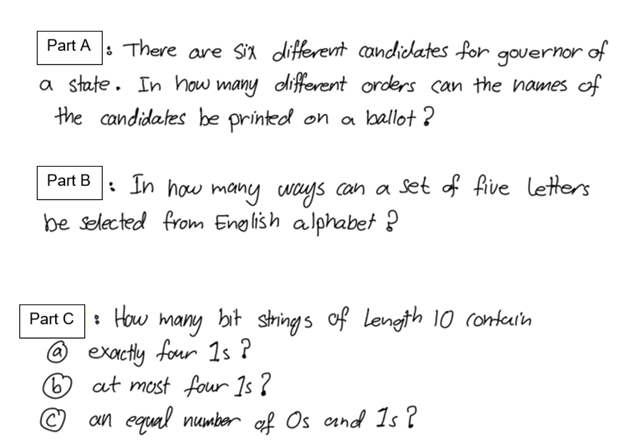 Part A : There are six different candidates for governor of
a state. In how many different orders can the names of
the candidates be printed on a ballot?
Part B : In how many ways can a set of five letters
be selected from English alphabet?
Part C : How many bit strings of length 10 contain
ⓐ exactly four 1s?
ⓑ at most four 1s?
ⓒ an equal number of 0s and 1s?